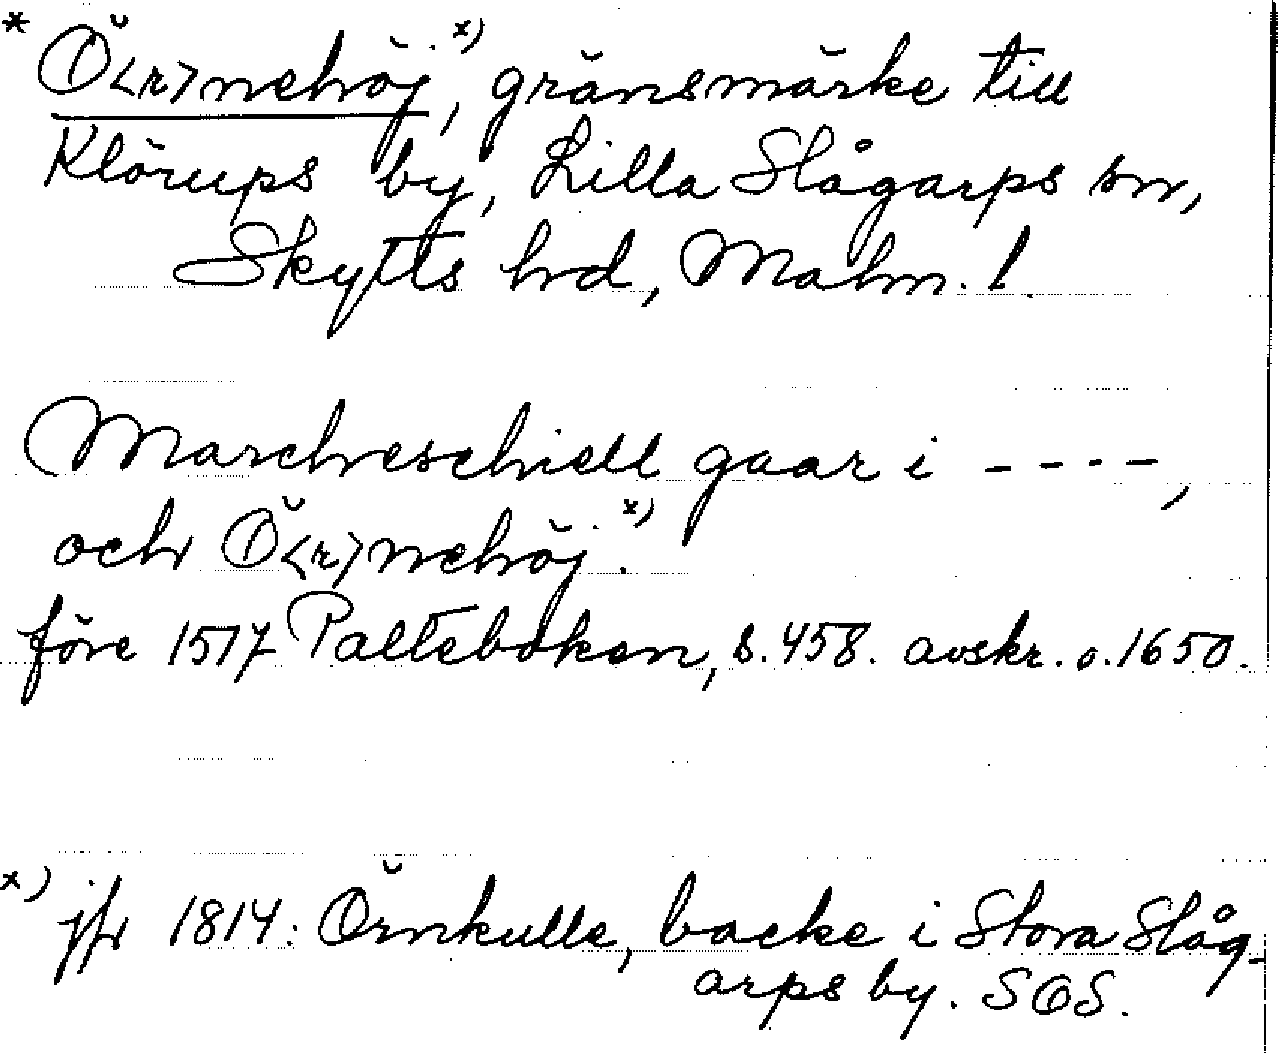 * Ö<r>nehöj x), gränsmärke till
Klörups by, Lilla Slågarps sn,
Skytts hd, Malm. l.
Marcheschiell gaar i ----,
och Ö<r>nehöj. x)
före 1517 Palteboken, s. 458. avskr. o. 1650.
x) jfr 1814: Örnkulle, backe i Stora Slåg-
arps by. SOS.